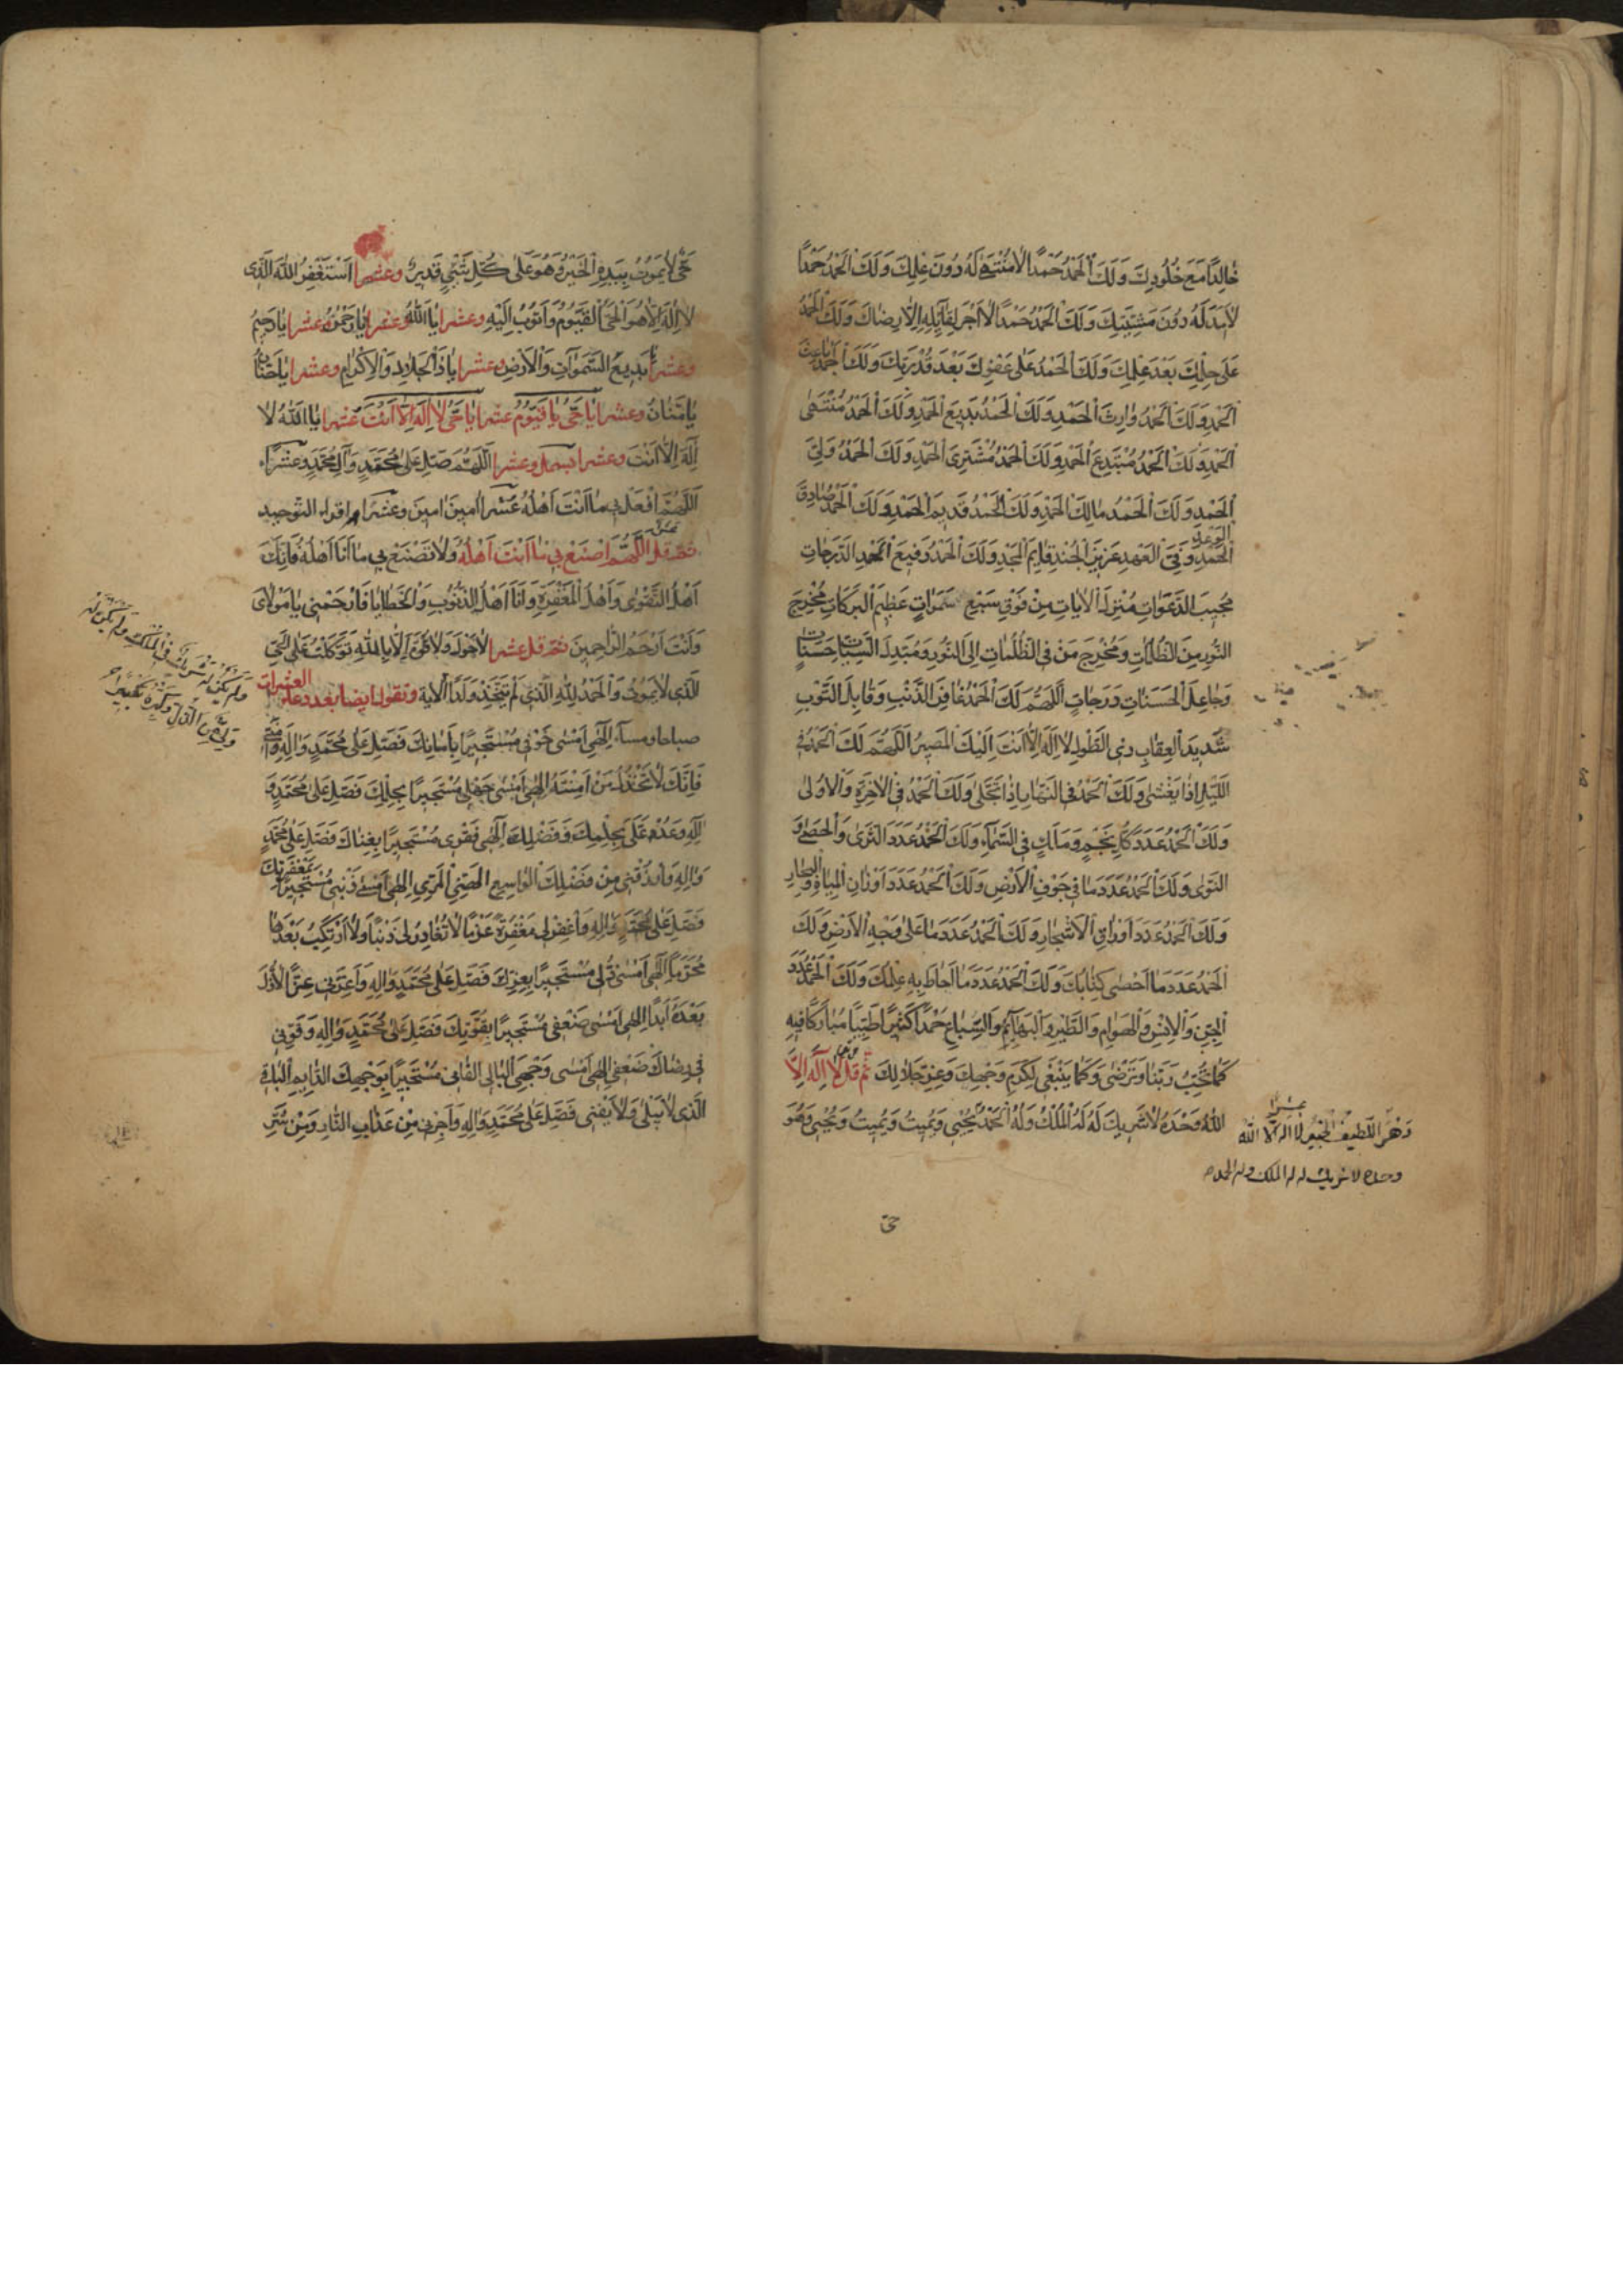 خالِدًا مَعَ خُلُودِكَ وَلَكَ الْحَمْدُ حَمْدًا لَا مُنْتَهٰى لَهُ دُونَ عِلْمِكَ وَلَكَ الْحَمْدُ حَمْدًا
لَا اَمَدَ لَهُ دُونَ مَشِيَّتِكَ وَلَكَ الْحَمْدُ حَمْدًا لَا اَجْرَ لِقَآئِلِهِ اِلَّا رِضَاكَ وَلَكَ الْحَمْدُ
عَلٰى حِلْمِكَ بَعْدَ عِلْمِكَ وَلَكَ الْحَمْدُ عَلٰى عَفْوِكَ بَعْدَ قُدْرَتِكَ وَلَكَ الْحَمْدُ بَاعِثَ
الْحَمْدِ وَلَكَ الْحَمْدُ وَارِثَ الْحَمْدِ وَلَكَ الْحَمْدُ بَدِيعَ الْحَمْدِ وَلَكَ الْحَمْدُ مُنْتَهَى
الْحَمْدِ وَلَكَ الْحَمْدُ مُبْتَدِعَ الْحَمْدِ وَلَكَ الْحَمْدُ مُشْتَرِىَ الْحَمْدِ وَلَكَ الْحَمْدُ وَلِىَّ
الْحَمْدِ وَلَكَ الْحَمْدُ مَالِكَ الْحَمْدِ وَلَكَ الْحَمْدُ قَدِيمَ الْحَمْدِ وَلَكَ الْحَمْدُ صَادِقَ
الْوَعْدِ
الْحَمْدِ وَفِىَّ الْعَهْدِ عَزِيزَ الْجُنْدِ قَايِمَ الْمَجْدِ وَلَكَ الْحَمْدُ رَفِيعَ الْحَمْدِ الدَّرَجَاتِ
مُجِيبَ الدَّعَوَاتِ مُنْزِلَ الْاٰيَاتِ مِنْ فَوْقِ سَبْعِ سَمَوَاتٍ عَظِيمَ الْبَرَكَاتِ مُخْرِجَ
النُّورِ مِنَ الظُّلُمَاتِ وَمُخْرِجَ مَنْ فِى الظُّلُمَاتِ اِلَى النُّورِ وَمُبَدِّلَ السَّيِّئَاتِ حَسَنَاتٍ
وَجَاعِلَ الْحَسَنَاتِ دَرَجَاتٍ اَللّٰهُمَّ لَكَ الْحَمْدُ غَافِرَ الذَّنْبِ وَقَابِلَ التَّوْبِ
شَدِيدَ الْعِقَابِ ذِى الطَّوْلِ لَا اِلٰهَ اِلَّا اَنْتَ اِلَيْكَ الْمَصِيرُ اَللّٰهُمَّ لَكَ الْحَمْدُ فِى
اللَّيْلِ اِذَا يَغْشٰى وَلَكَ الْحَمْدُ فِى النَّهَارِ اِذَا تَجَلّٰى وَلَكَ الْحَمْدُ فِى الْاٰخِرَةِ وَالْاُولٰى
وَلَكَ الْحَمْدُ عَدَدَ كُلِّ نَجْمٍ وَمَلَكٍ فِى السَّمَآءِ وَلَكَ الْحَمْدُ عَدَدَ الثَّرٰى وَالْحَصٰى وَ
النَّوٰى وَلَكَ الْحَمْدُ عَدَدَ مَا فِى جَوْفِ الْاَرْضِ وَلَكَ الْحَمْدُ عَدَدَ اَوْزَانِ الْمِيَاهِ وَالْبِحَارِ
وَلَكَ الْحَمْدُ عَدَدَ اَوْرَاقِ الْاَشْجَارِ وَلَكَ الْحَمْدُ عَدَدَ مَا عَلٰى وَجْهِ الْاَرْضِ وَلَكَ
الْحَمْدُ عَدَدَ مَا اَحْصٰى كِتَابُكَ وَلَكَ الْحَمْدُ عَدَدَ مَا اَحَاطَ بِهِ عِلْمُكَ وَلَكَ الْحَمْدُ عَدَدَ
الْجِنِّ وَالْاِنْسِ وَالْهَوَامِ وَالطَّيْرِ وَالْبَهَآئِمِ وَالسِّبَاعِ حَمْدًا كَثِيرًا طَيِّبًا مُبَارَكًا فِيهِ
كَمَا تُحِبُّ رَبَّنَا وَتَرْضٰى وَكَمَا يَنْبَغِى لِكَرَمِ وَجْهِكَ وَعِزِّ جَلَالِكَ ثُمَّ قل لَا اِلٰهَ اِلَّا
اللّٰهُ وَحْدَهُ لَا شَرِيكَ لَهُ لَهُ الْمُلْكُ وَلَهُ الْحَمْدُ يُحْيِى وَيُمِيتُ وَيُمِيتُ وَيُحْيِى وَهُوَ
عشرا
وَهُوَ اللَّطِيفُ الْخَبِيرُ لا اله الا الله
وحده لا شريك له له الملك وله الحمد
حىّ
حَىٌّ لَا يَمُوتُ بِيَدِهِ الْخَيْرُ وَهُوَ عَلٰى كُلِّ شَىْءٍ قَدِيرٌ وعشرا اَسْتَغْفِرُ اللّٰهَ الَّذِى
لَا اِلٰهَ اِلَّا هُوَ الْحَىُّ الْقَيُّومُ وَاَتُوبُ اِلَيْهِ وعشرا يَا اَللّٰهُ وعشرا يَا رَحْمٰنُ وعشرا يَا رَحِيمُ
وعشرا يَا بَدِيعَ السَّمَوَاتِ وَالْاَرْضِ وعشرا يَا ذَا الْجَلَالِ وَالْاِكْرَامِ وعشرا يَا حَنَّانُ
يَا مَنَّانُ وعشرا يَا حَىُّ يَا قَيُّومُ عشرا يَا حَىُّ لَا اِلٰهَ اِلَّا اَنْتَ عشرا يَا اَللّٰهُ لَا
اِلٰهَ اِلَّا اَنْتَ وعشرا بسمل وعشرا اَللّٰهُمَّ صَلِّ عَلٰى مُحَمَّدٍ وَاٰلِ مُحَمَّدٍ وعَشْرًا
اَللّٰهُمَّ افْعَلْ بِى مَا اَنْتَ اَهْلُهُ عَشْرًا اٰمِينَ اٰمِينَ وعَشْرًا واقراء التوحيد
عشرا
ثم قل اَللّٰهُمَّ اصْنَعْ بِى مَا اَنْتَ اَهْلُهُ وَلَا تَصْنَعْ بِى مَا اَنَا اَهْلُهُ فَاِنَّكَ
اَهْلُ التَّقْوٰى وَاَهْلُ الْمَغْفِرَةِ وَاَنَا اَهْلُ الذُّنُوبِ وَالْخَطَايَا فَارْحَمْنِى يَا مَوْلَاىَ
وَاَنْتَ اَرْحَمُ الرَّاحِمِينَ ثم قل عشرا لَا حَوْلَ وَلَا قُوَّةَ اِلَّا بِاللّٰهِ تَوَكَّلْتُ عَلَى الْحَىِّ
الَّذِى لَا يَمُوتُ وَالْحَمْدُ لِلّٰهِ الَّذِى لَمْ يَتَّخِذْ وَلَدًا الآية وتقول ايضا بعد دعاء العشرات
وَلَمْ يَكُنْ لَهُ شَرِيكٌ فِى الْمُلْكِ وَلَمْ يَكُنْ لَهُ
وَلِىٌّ مِنَ الذُّلِّ وَكَبِّرْهُ تَكْبِيرًا
صباحا ومساء اِلٰهِى اَمْسٰى خَوْفِى مُسْتَجِيرًا بِاَمَانِكَ فَصَلِّ عَلٰى مُحَمَّدٍ وَاٰلِهِ وَاٰمِنِّى
فَاِنَّكَ لَا تَخْذُلُ مَنْ اٰمَنْتَهُ اِلٰهِى اَمْسٰى جَهْلِى مُسْتَجِيرًا بِحِلْمِكَ فَصَلِّ عَلٰى مُحَمَّدٍ وَ
اٰلِهِ وَعُدْ عَلَىَّ بِحِلْمِكَ وَفَضْلِكَ اِلٰهِى فَقْرِى مُسْتَجِيرًا بِغِنَاكَ فَصَلِّ عَلٰى مُحَمَّدٍ
وَاٰلِهِ وَارْزُقْنِى مِنْ فَضْلِكَ الْوَاسِعِ الْهَنِئِ الْمَرِئِ اِلٰهِى اَمْسٰى ذَنْبِى مُسْتَجِيرًا بِمَغْفِرَتِكَ
فَصَلِّ عَلٰى مُحَمَّدٍ وَاٰلِهِ وَاغْفِرْ لِى مَغْفِرَةً عَزْمًا لَا تُغَادِرُ لِى ذَنْبًا وَلَا اَرْتَكِبُ بَعْدَهَا
مُحَرَّمًا اِلٰهِى اَمْسٰى ذُلِّى مُسْتَجِيرًا بِعِزِّكَ فَصَلِّ عَلٰى مُحَمَّدٍ وَاٰلِهِ وَاَعِزَّنِى عِزًّا لَا ذُلَّ
بَعْدَهُ اَبَدًا اِلٰهِى اَمْسٰى ضَعْفِى مُسْتَجِيرًا بِقُوَّتِكَ فَصَلِّ عَلٰى مُحَمَّدٍ وَاٰلِهِ وَقَوِّنِى
فِى رِضَاكَ ضَعْفِى اِلٰهِى اَمْسٰى وَجْهِىَ الْبَالِى الْفَانِى مُسْتَجِيرًا بِوَجْهِكَ الدَّايِمِ الْبَاقِى
الَّذِى لَا يَبْلٰى وَلَا يَفْنٰى فَصَلِّ عَلٰى مُحَمَّدٍ وَاٰلِهِ وَاَجِرْنِى مِنْ عَذَابِ النَّارِ وَمِنْ شَرِّ